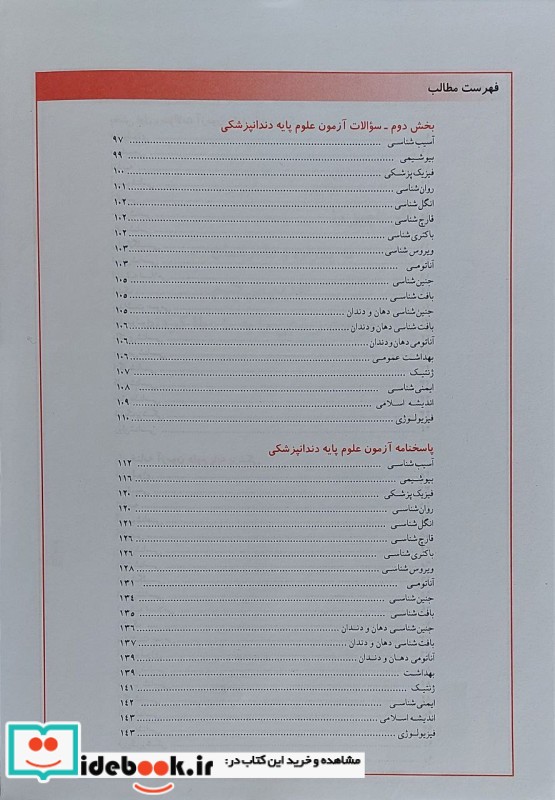 فهرست مطالب
بخش دوم ـ سؤالات آزمون علوم پایه دندانپزشکی
آسیب‌شناسی ........ ۹۷
بیوشیمی ........ ۹۹
فیزیک پزشکی ........ ۱۰۰
روان‌شناسی ........ ۱۰۱
انگل‌شناسی ........ ۱۰۲
قارچ‌شناسی ........ ۱۰۲
باکتری‌شناسی ........ ۱۰۲
ویروس‌شناسی ........ ۱۰۳
آناتومی ........ ۱۰۳
جنین‌شناسی ........ ۱۰۵
بافت‌شناسی ........ ۱۰۵
جنین‌شناسی دهان و دندان ........ ۱۰۵
بافت‌شناسی دهان و دندان ........ ۱۰۶
آناتومی دهان و دندان ........ ۱۰۶
بهداشت عمومی ........ ۱۰۶
ژنتیک ........ ۱۰۷
ایمنی‌شناسی ........ ۱۰۸
اندیشه اسلامی ........ ۱۰۹
فیزیولوژی ........ ۱۱۰
پاسخنامه آزمون علوم پایه دندانپزشکی
آسیب‌شناسی ........ ۱۱۲
بیوشیمی ........ ۱۱۶
فیزیک پزشکی ........ ۱۲۰
روان‌شناسی ........ ۱۲۰
انگل‌شناسی ........ ۱۲۱
قارچ‌شناسی ........ ۱۲۶
باکتری‌شناسی ........ ۱۲۶
ویروس‌شناسی ........ ۱۲۸
آناتومی ........ ۱۳۱
جنین‌شناسی ........ ۱۳۴
بافت‌شناسی ........ ۱۳۵
جنین‌شناسی دهان و دندان ........ ۱۳۶
بافت‌شناسی دهان و دندان ........ ۱۳۷
آناتومی دهان و دندان ........ ۱۳۹
بهداشت ........ ۱۳۹
ژنتیک ........ ۱۴۱
ایمنی‌شناسی ........ ۱۴۲
اندیشه اسلامی ........ ۱۴۳
فیزیولوژی ........ ۱۴۳
مشاهده و خرید این کتاب در:
idebook.ir